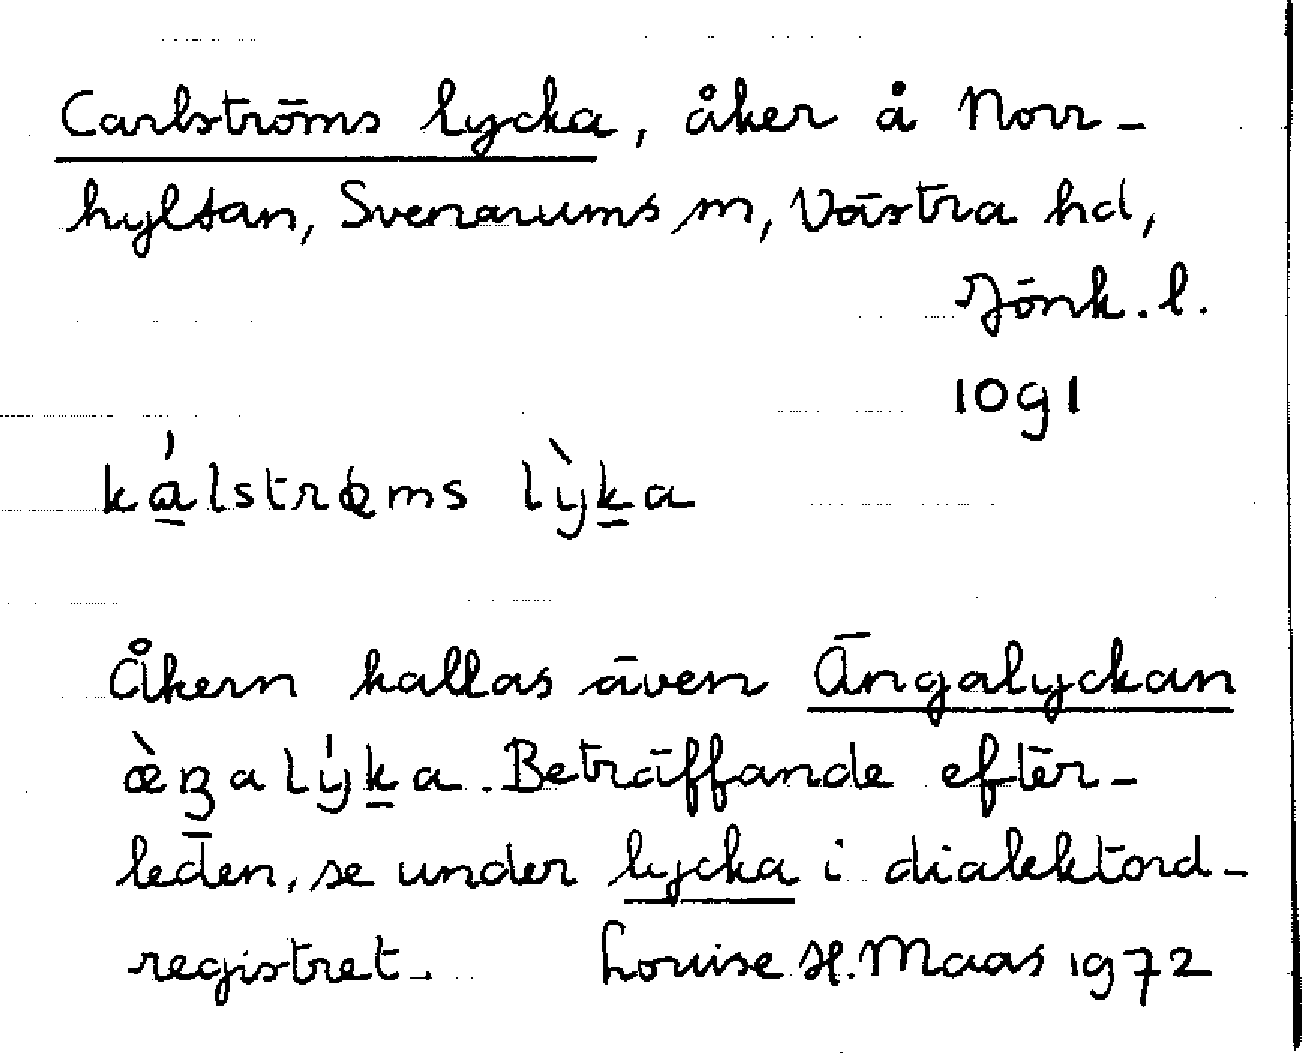 Carlströms lycka, åker å Norr-
hyltan, Svenarums sn, Västra hd,
Jönk. l.
1091
ká̱lstrœms lỳḵa
Åkern kallas även Ängalyckan
æ̀ŋalýḵa. Beträffande efter-
leden, se under lycka i dialektord-
registret. Louise H. Maas 1972